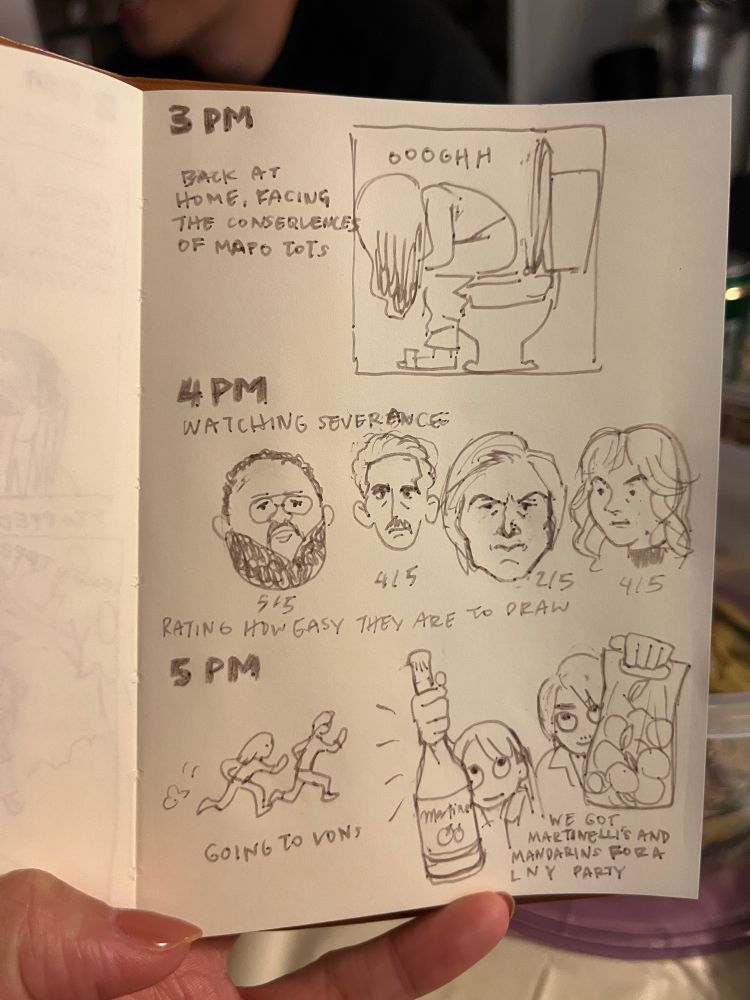 3 PM
BACK AT
HOME, FACING
THE CONSEQUENCES
OF MAPO TOTS
OOOGHH
4 PM
WATCHING SEVERANCE
5/5
4/5
2/5
4/5
RATING HOW EASY THEY ARE TO DRAW
5 PM
GOING TO VONS
Martine
WE GOT
MARTINELLI'S AND
MANDARINS FOR A
LNY PARTY